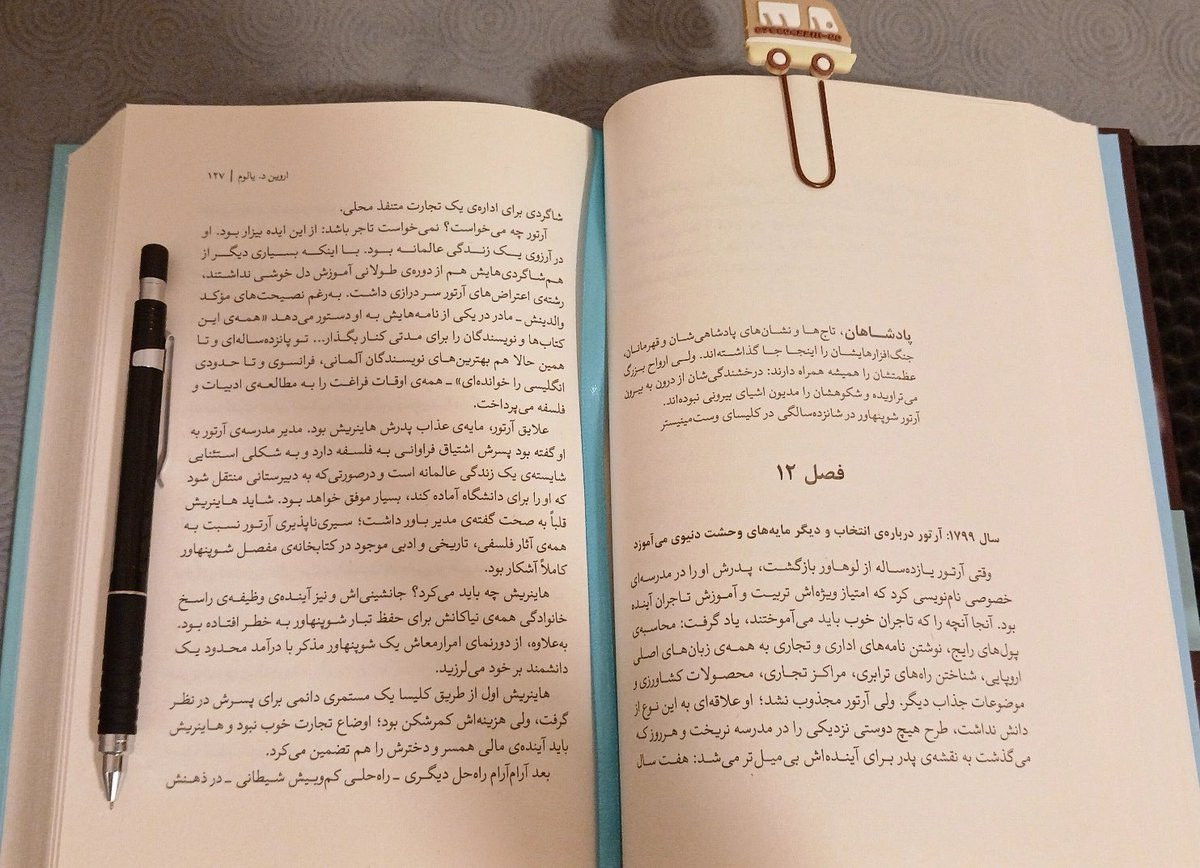 پادشاهان، تاج‌ها و نشان‌های پادشاهی‌شان و قهرمانان،
جنگ‌افزارهایشان را اینجا جا گذاشته‌اند. ولی ارواح بزرگ
عظمتشان را همیشه همراه دارند: درخشندگی‌شان از درون به بیرون
می‌تراویده و شکوهشان را مدیون اشیای بیرونی نبوده‌اند.
آرتور شوپنهاور در شانزده‌سالگی در کلیسای وست‌مینیستر
فصل ۱۲
سال ۱۷۹۹: آرتور درباره‌ی انتخاب و دیگر مایه‌های وحشت دنیوی می‌آموزد
وقتی آرتور یازده‌ساله از لوهاور بازگشت، پدرش او را در مدرسه‌ای
خصوصی نام‌نویسی کرد که امتیاز ویژه‌اش تربیت و آموزش تاجران آینده
بود. آنجا آنچه را که تاجران خوب باید می‌آموختند، یاد گرفت: محاسبه‌ی
پول‌های رایج، نوشتن نامه‌های اداری و تجاری به همه‌ی زبان‌های اصلی
اروپایی، شناختن راه‌های ترابری، مراکز تجاری، محصولات کشاورزی و
موضوعات جذاب دیگر. ولی آرتور مجذوب نشد؛ او علاقه‌ای به این نوع از
دانش نداشت، طرح هیچ دوستی نزدیکی را در مدرسه نریخت و هرروز که
می‌گذشت به نقشه‌ی پدر برای آینده‌اش بی‌میل‌تر می‌شد: هفت سال
اروین د. یالوم | ۱۲۷
شاگردی برای اداره‌ی یک تجارت متنفذ محلی.
آرتور چه می‌خواست؟ نمی‌خواست تاجر باشد: از این ایده بیزار بود. او
در آرزوی یک زندگی عالمانه بود. با اینکه بسیاری دیگر از
هم‌شاگردی‌هایش هم از دوره‌ی طولانی آموزش دل خوشی نداشتند،
رشته‌ی اعتراض‌های آرتور سر درازی داشت. به‌رغم نصیحت‌های مؤکد
والدینش ـ مادر در یکی از نامه‌هایش به او دستور می‌دهد «همه‌ی این
کتاب‌ها و نویسندگان را برای مدتی کنار بگذار... تو پانزده‌ساله‌ای و تا
همین حالا هم بهترین‌های نویسندگان آلمانی، فرانسوی و تا حدودی
انگلیسی را خوانده‌ای» ـ همه‌ی اوقات فراغت را به مطالعه‌ی ادبیات و
فلسفه می‌پرداخت.
علایق آرتور، مایه‌ی عذاب پدرش هاینریش بود. مدیر مدرسه‌ی آرتور به
او گفته بود پسرش اشتیاق فراوانی به فلسفه دارد و به شکلی استثنایی
شایسته‌ی یک زندگی عالمانه است و درصورتی‌که به دبیرستانی منتقل شود
که او را برای دانشگاه آماده کند، بسیار موفق خواهد بود. شاید هاینریش
قلباً به صحت گفته‌ی مدیر باور داشت؛ سیری‌ناپذیری آرتور نسبت به
همه‌ی آثار فلسفی، تاریخی و ادبی موجود در کتابخانه‌ی مفصل شوپنهاور
کاملاً آشکار بود.
هاینریش چه باید می‌کرد؟ جانشینی‌اش و نیز آینده‌ی وظیفه‌ی راسخ
خانوادگی همه‌ی نیاکانش برای حفظ تبار شوپنهاور به خطر افتاده بود.
به‌علاوه، از دورنمای امرارمعاش یک شوپنهاور مذکر با درآمد محدود یک
دانشمند بر خود می‌لرزید.
هاینریش اول از طریق کلیسا یک مستمری دائمی برای پسرش در نظر
گرفت، ولی هزینه‌اش کمرشکن بود؛ اوضاع تجارت خوب نبود و هاینریش
باید آینده‌ی مالی همسر و دخترش را هم تضمین می‌کرد.
بعد آرام‌آرام راه‌حل دیگری ـ راه‌حلی کم‌وبیش شیطانی ـ در ذهنش